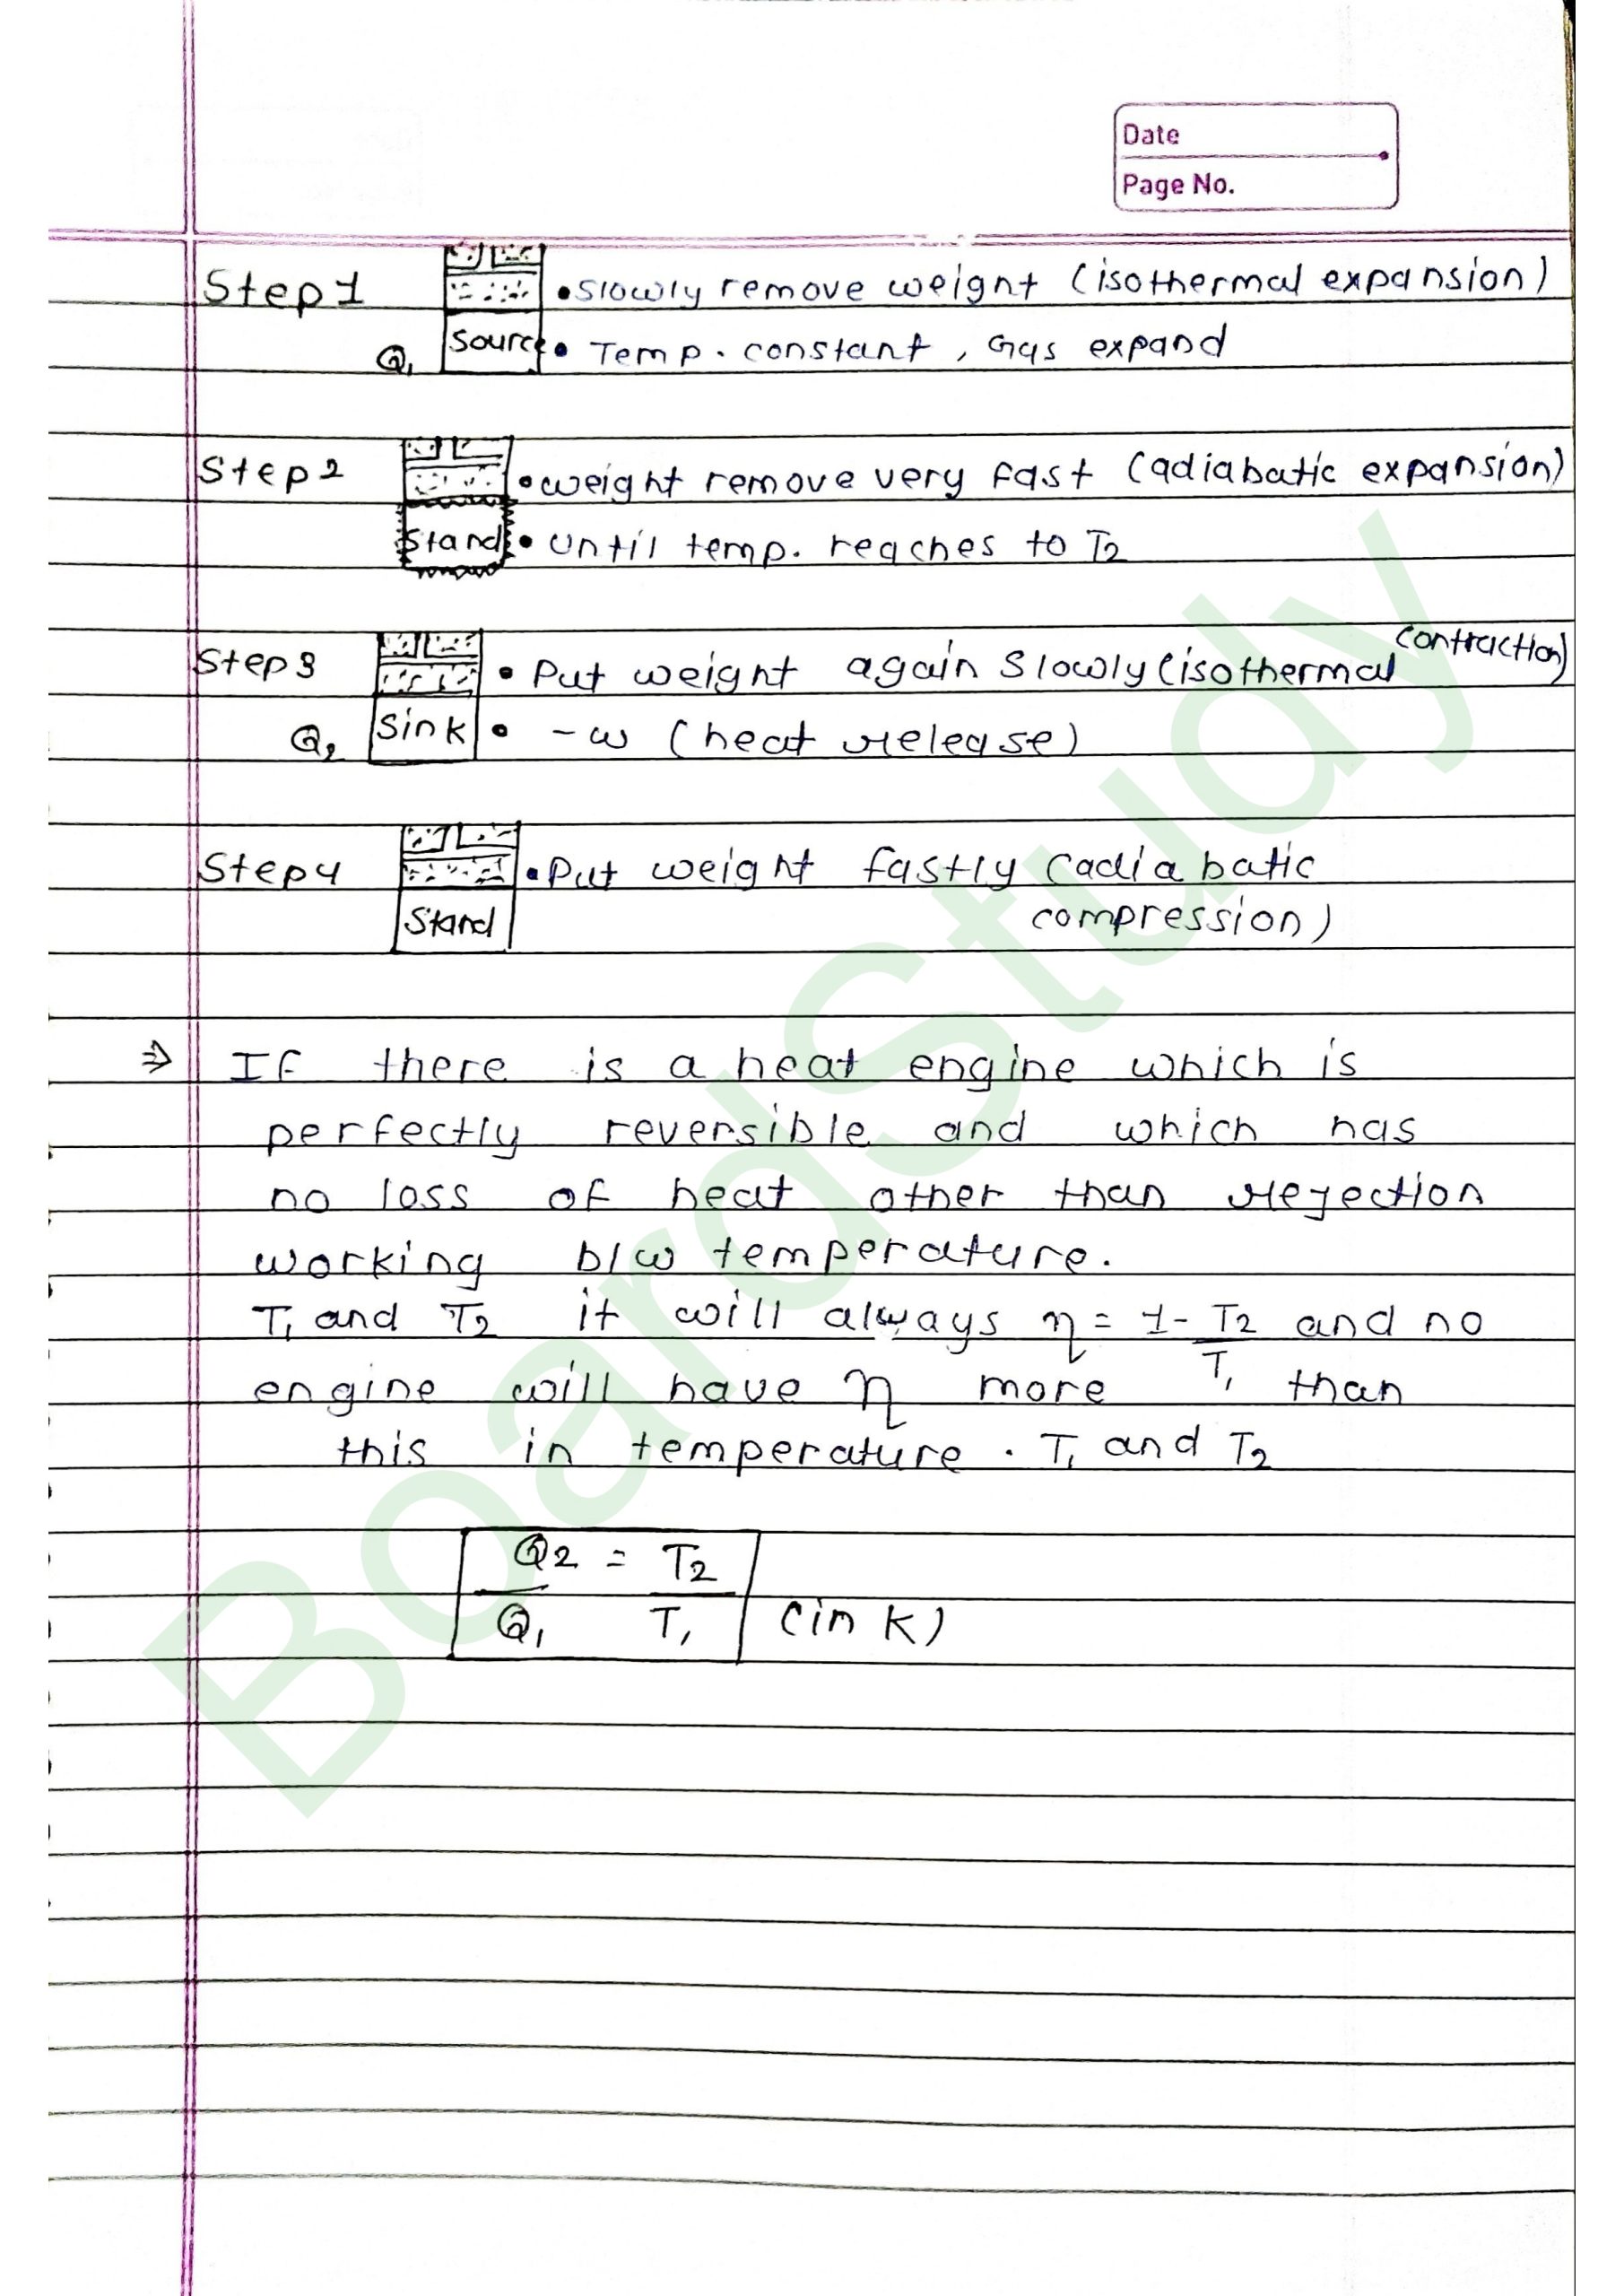 Date
Page No.
Step 1 • Slowly remove weignt (isothermal expansion)
Q₁ Source • Temp. constant, Gas expand
Step 2 • weight remove very fast (adiabatic expansion)
Stand • until temp. reaches to T2
Step 3 • Put weight again slowly (isothermal contraction)
Q₂ Sink • -w (heat release)
Step 4 • Put weight fastly (adiabatic
Stand compression)
⇒ If there is a heat engine which is
perfectly reversible and which has
no loss of heat other than rejection
working b/w temperature.
T₁ and T2 it will always η = 1- T2/T₁ and no
engine will have η more than
this in temperature. T₁ and T2
Q2/Q₁ = T2/T₁ (in K)
BoardStudy